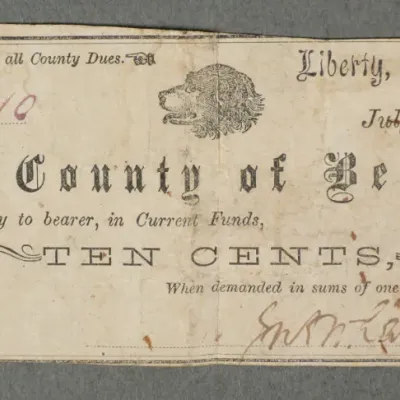 all County Dues.
Liberty,
10
Jul
County of Be
y to bearer, in Current Funds,
TEN CENTS,
When demanded in sums of one